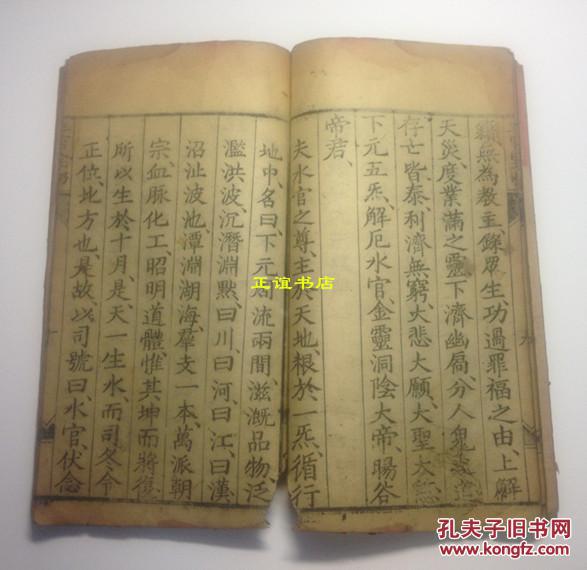 無為教主、錄眾生、功過罪福之由上解
天災、度業滿之靈、下濟幽扃、分人鬼
存亡皆泰、利濟無窮、大悲大願、大聖大慈
下元五炁、解厄水官、金靈洞陰大帝、暘谷
帝君、
夫水官之尊、主於天地、根於一炁、循行
地中、名曰、下元、周流兩間、滋漑品物、泛
濫洪波、沉潛淵黙、曰川、曰河、曰江、曰漢
沼沚波池、潭淵湖海、羣支一本、萬派朝
宗、血脉化工、昭明道體、惟其坤而將復
所以生於十月、是天一生水、而司冬令
正位、北方也、是故以司號曰、水官、伏念
正谊书店
孔夫子旧书网
www.kongfz.com